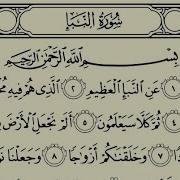 سُورَةُ النَّبَإِ
بِسْمِ ٱللَّهِ ٱلرَّحْمَٰنِ ٱلرَّحِيمِ
١ عَنِ ٱلنَّبَإِ ٱلْعَظِيمِ ٢ ٱلَّذِى هُمْ فِيهِ
٤ ثُمَّ كَلَّا سَيَعْلَمُونَ ٥ أَلَمْ نَجْعَلِ ٱلْأَرْضَ
٧ وَخَلَقْنَٰكُمْ أَزْوَٰجًا ٨ وَجَعَلْنَا